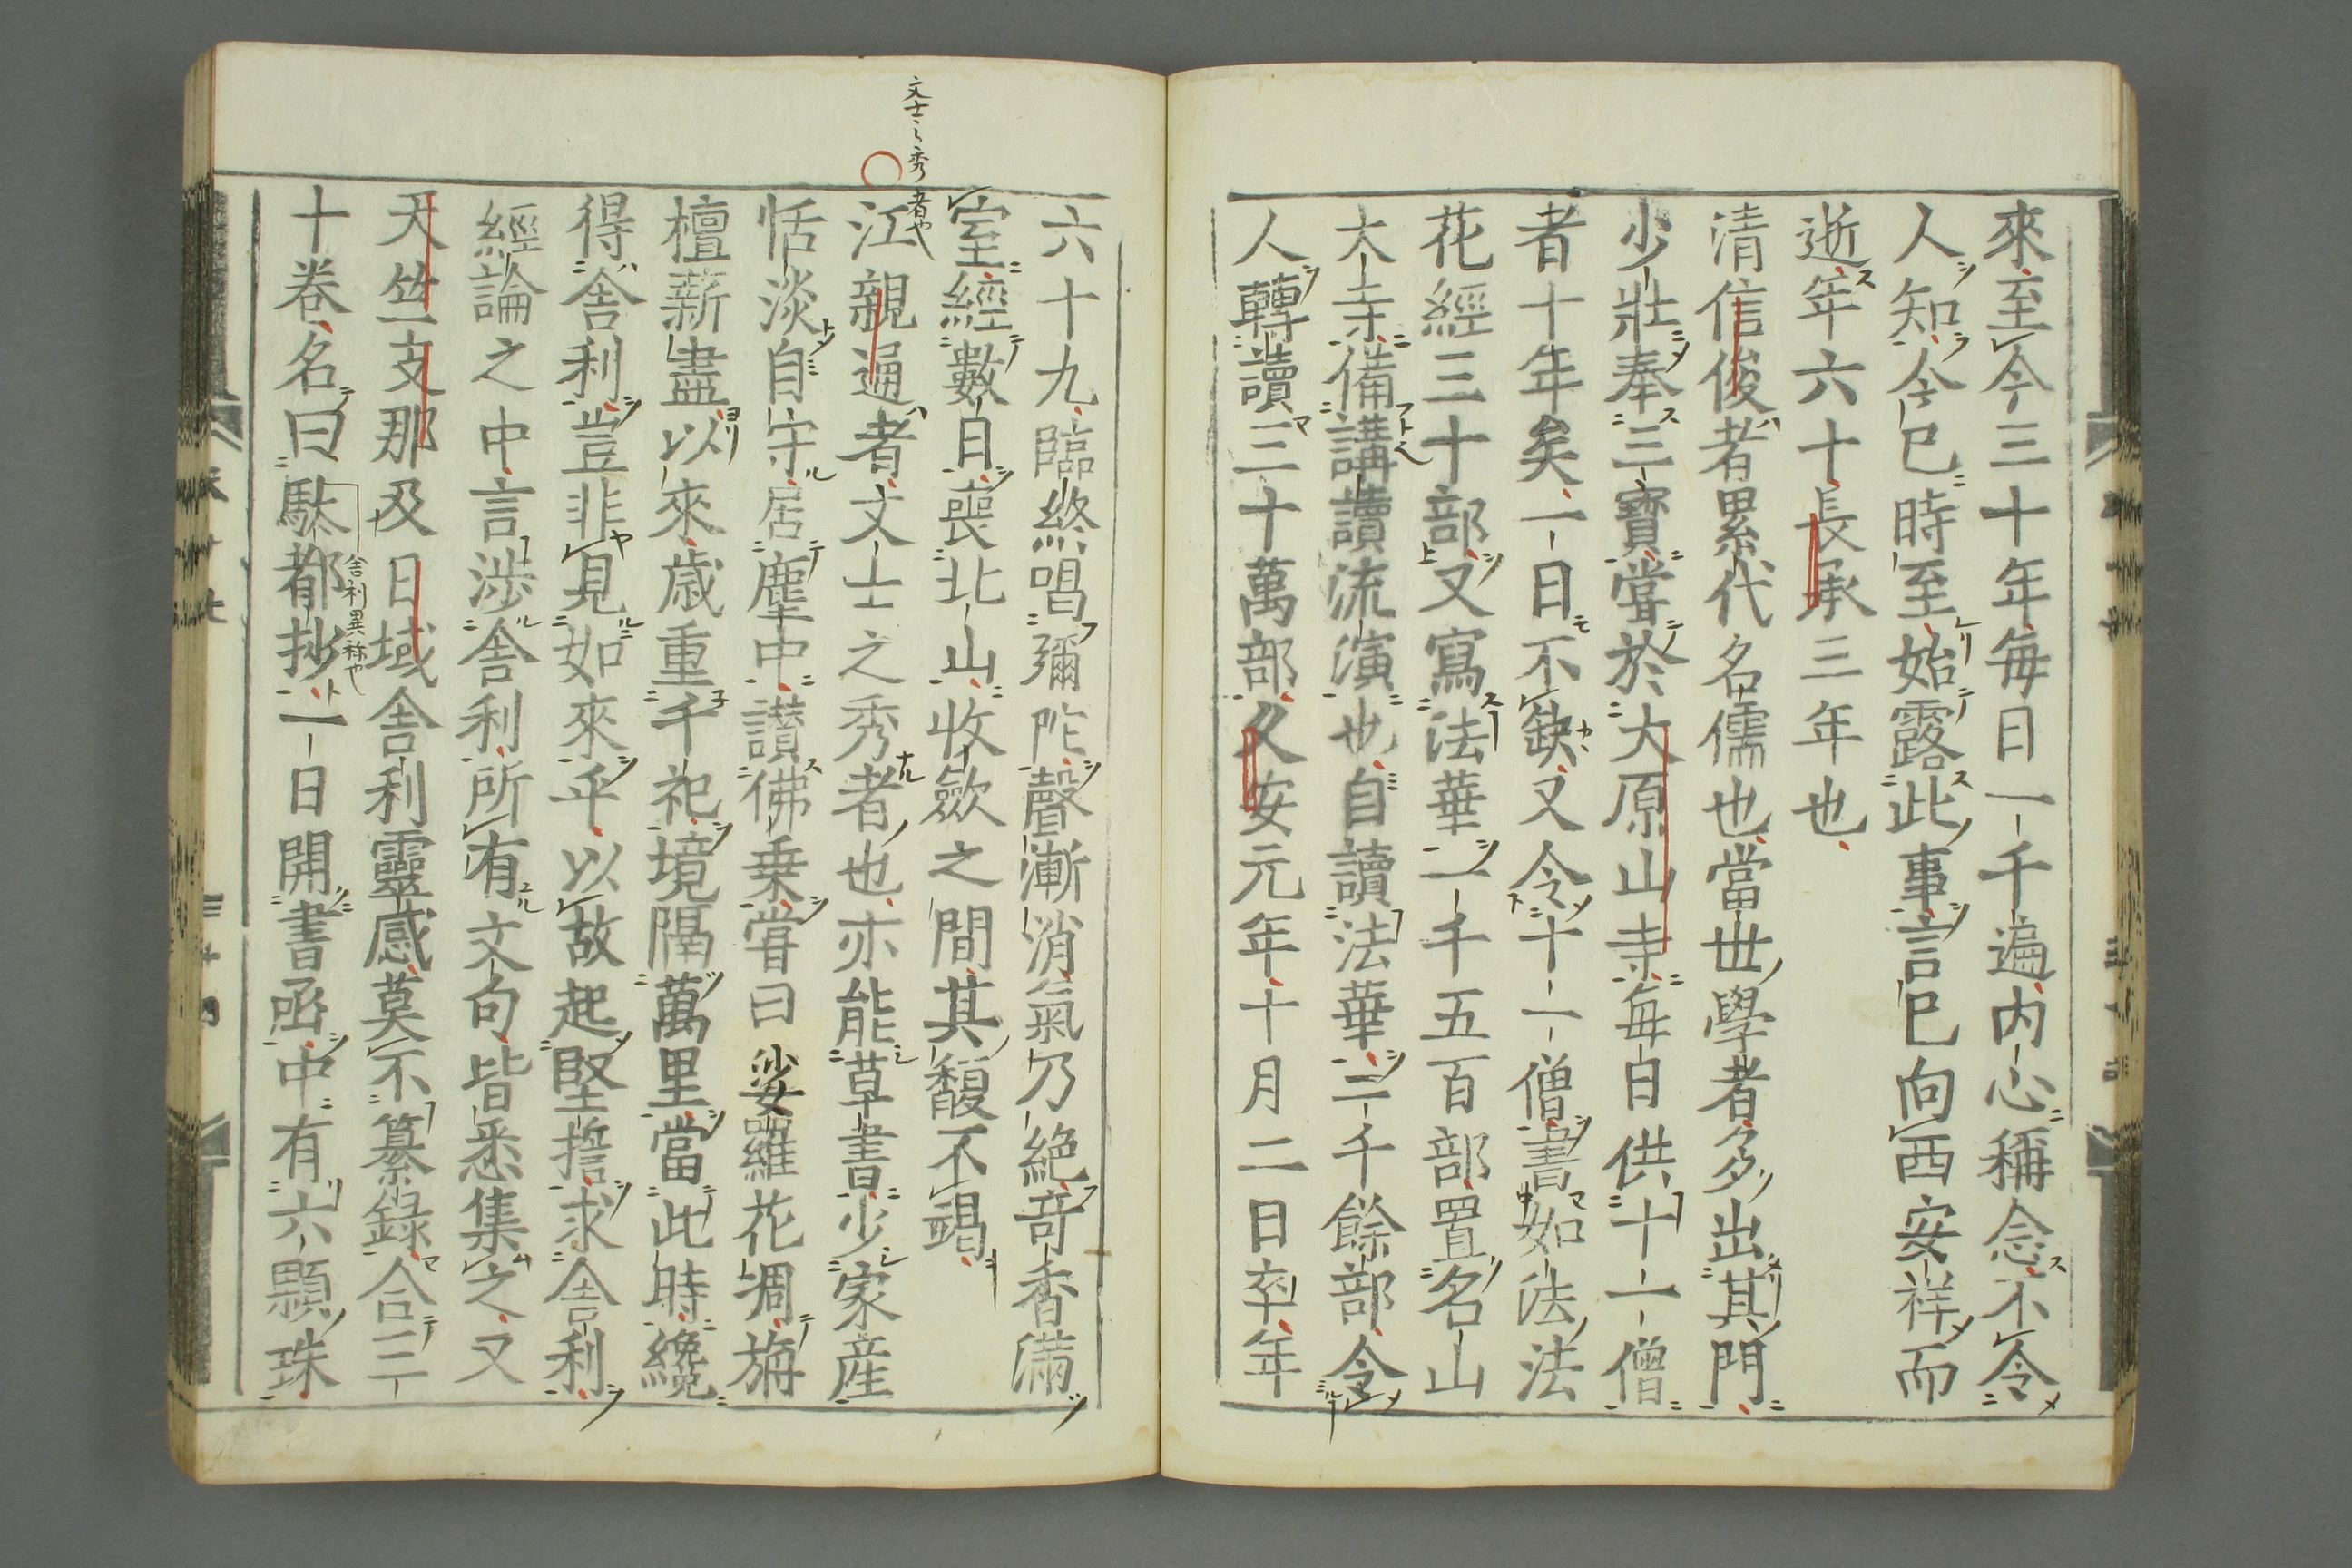 來至今三十年每日一千遍内心稱念不令
人知今已時至始露此事言已向西安祥而
逝年六十長承三年也
清信俊者累代名儒也當世學者多出其門
少壯奉三寶嘗於大原山寺每日供十一僧
者十年矣一日不缺又令十一僧書如法法
花經三十部又寫法華一千五百部置名山
大寺備講讀流演也自讀法華二千餘部令
人轉讀三十萬部久安元年十月二日卒年
六十九臨終唱彌陀聲漸消氣乃絕奇香滿
室經數日喪北山收斂之間其馥不竭
江親通者文士之秀者也亦能草書少家産
恬淡自守居塵中讃佛乗嘗曰娑羅花凋旃
檀薪盡以來歳重千祀境隔萬里當此時纔
得舎利豈非見如來乎以故起堅誓求舎利
經論之中言渉舎利所有文句皆悉集之又
天竺支那及日域舎利靈感莫不纂録合三
十卷名曰馱都抄一日開書函中有六顆珠
文士之秀者也
舎利異称也